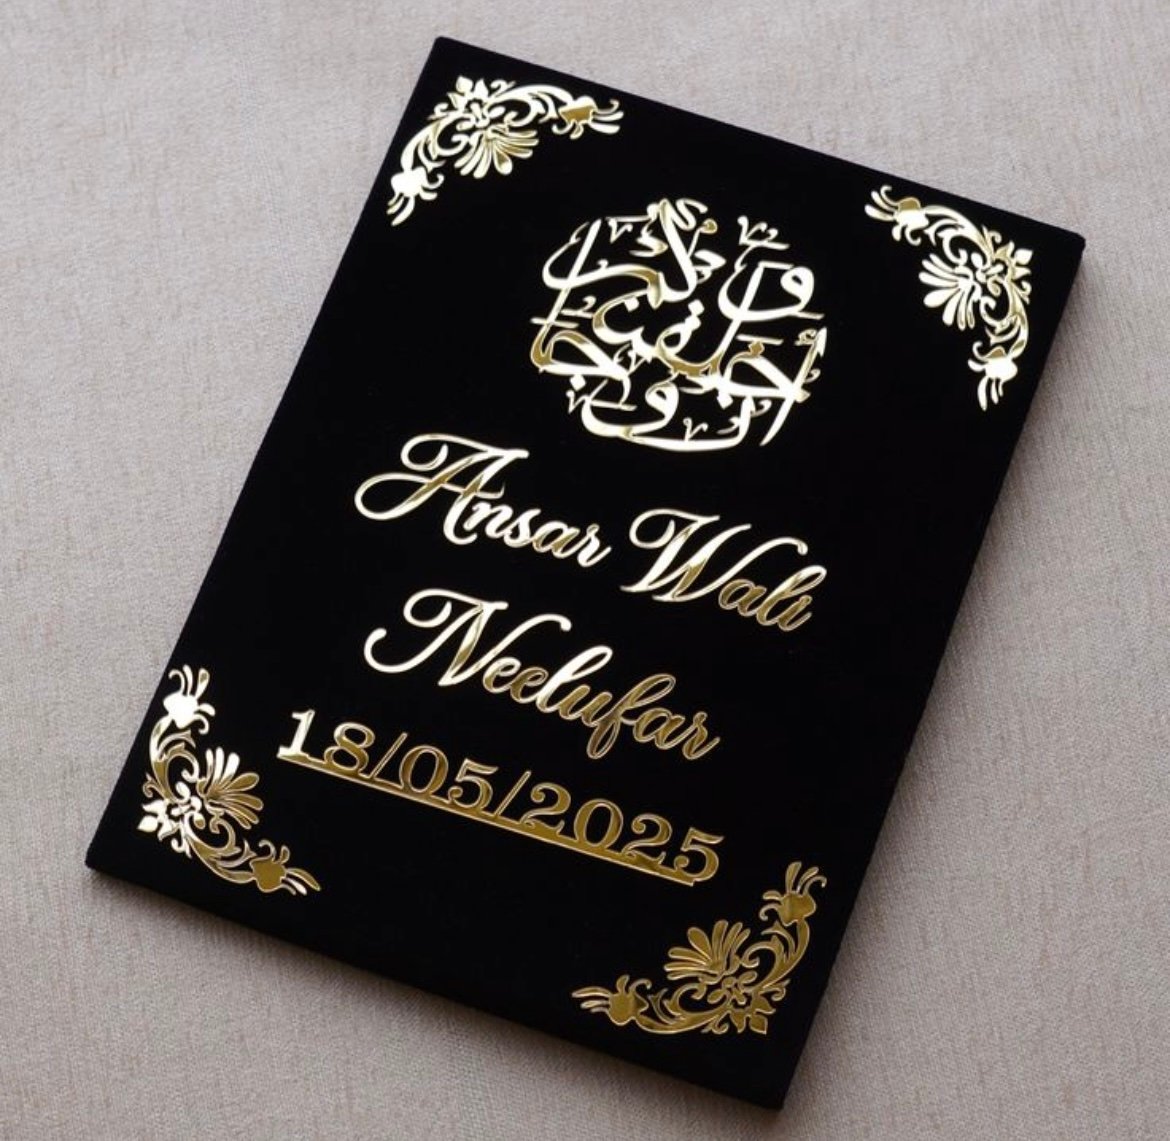 وخلقناكم أزواجا
Ansar Wali
Neelufar
18/05/2025